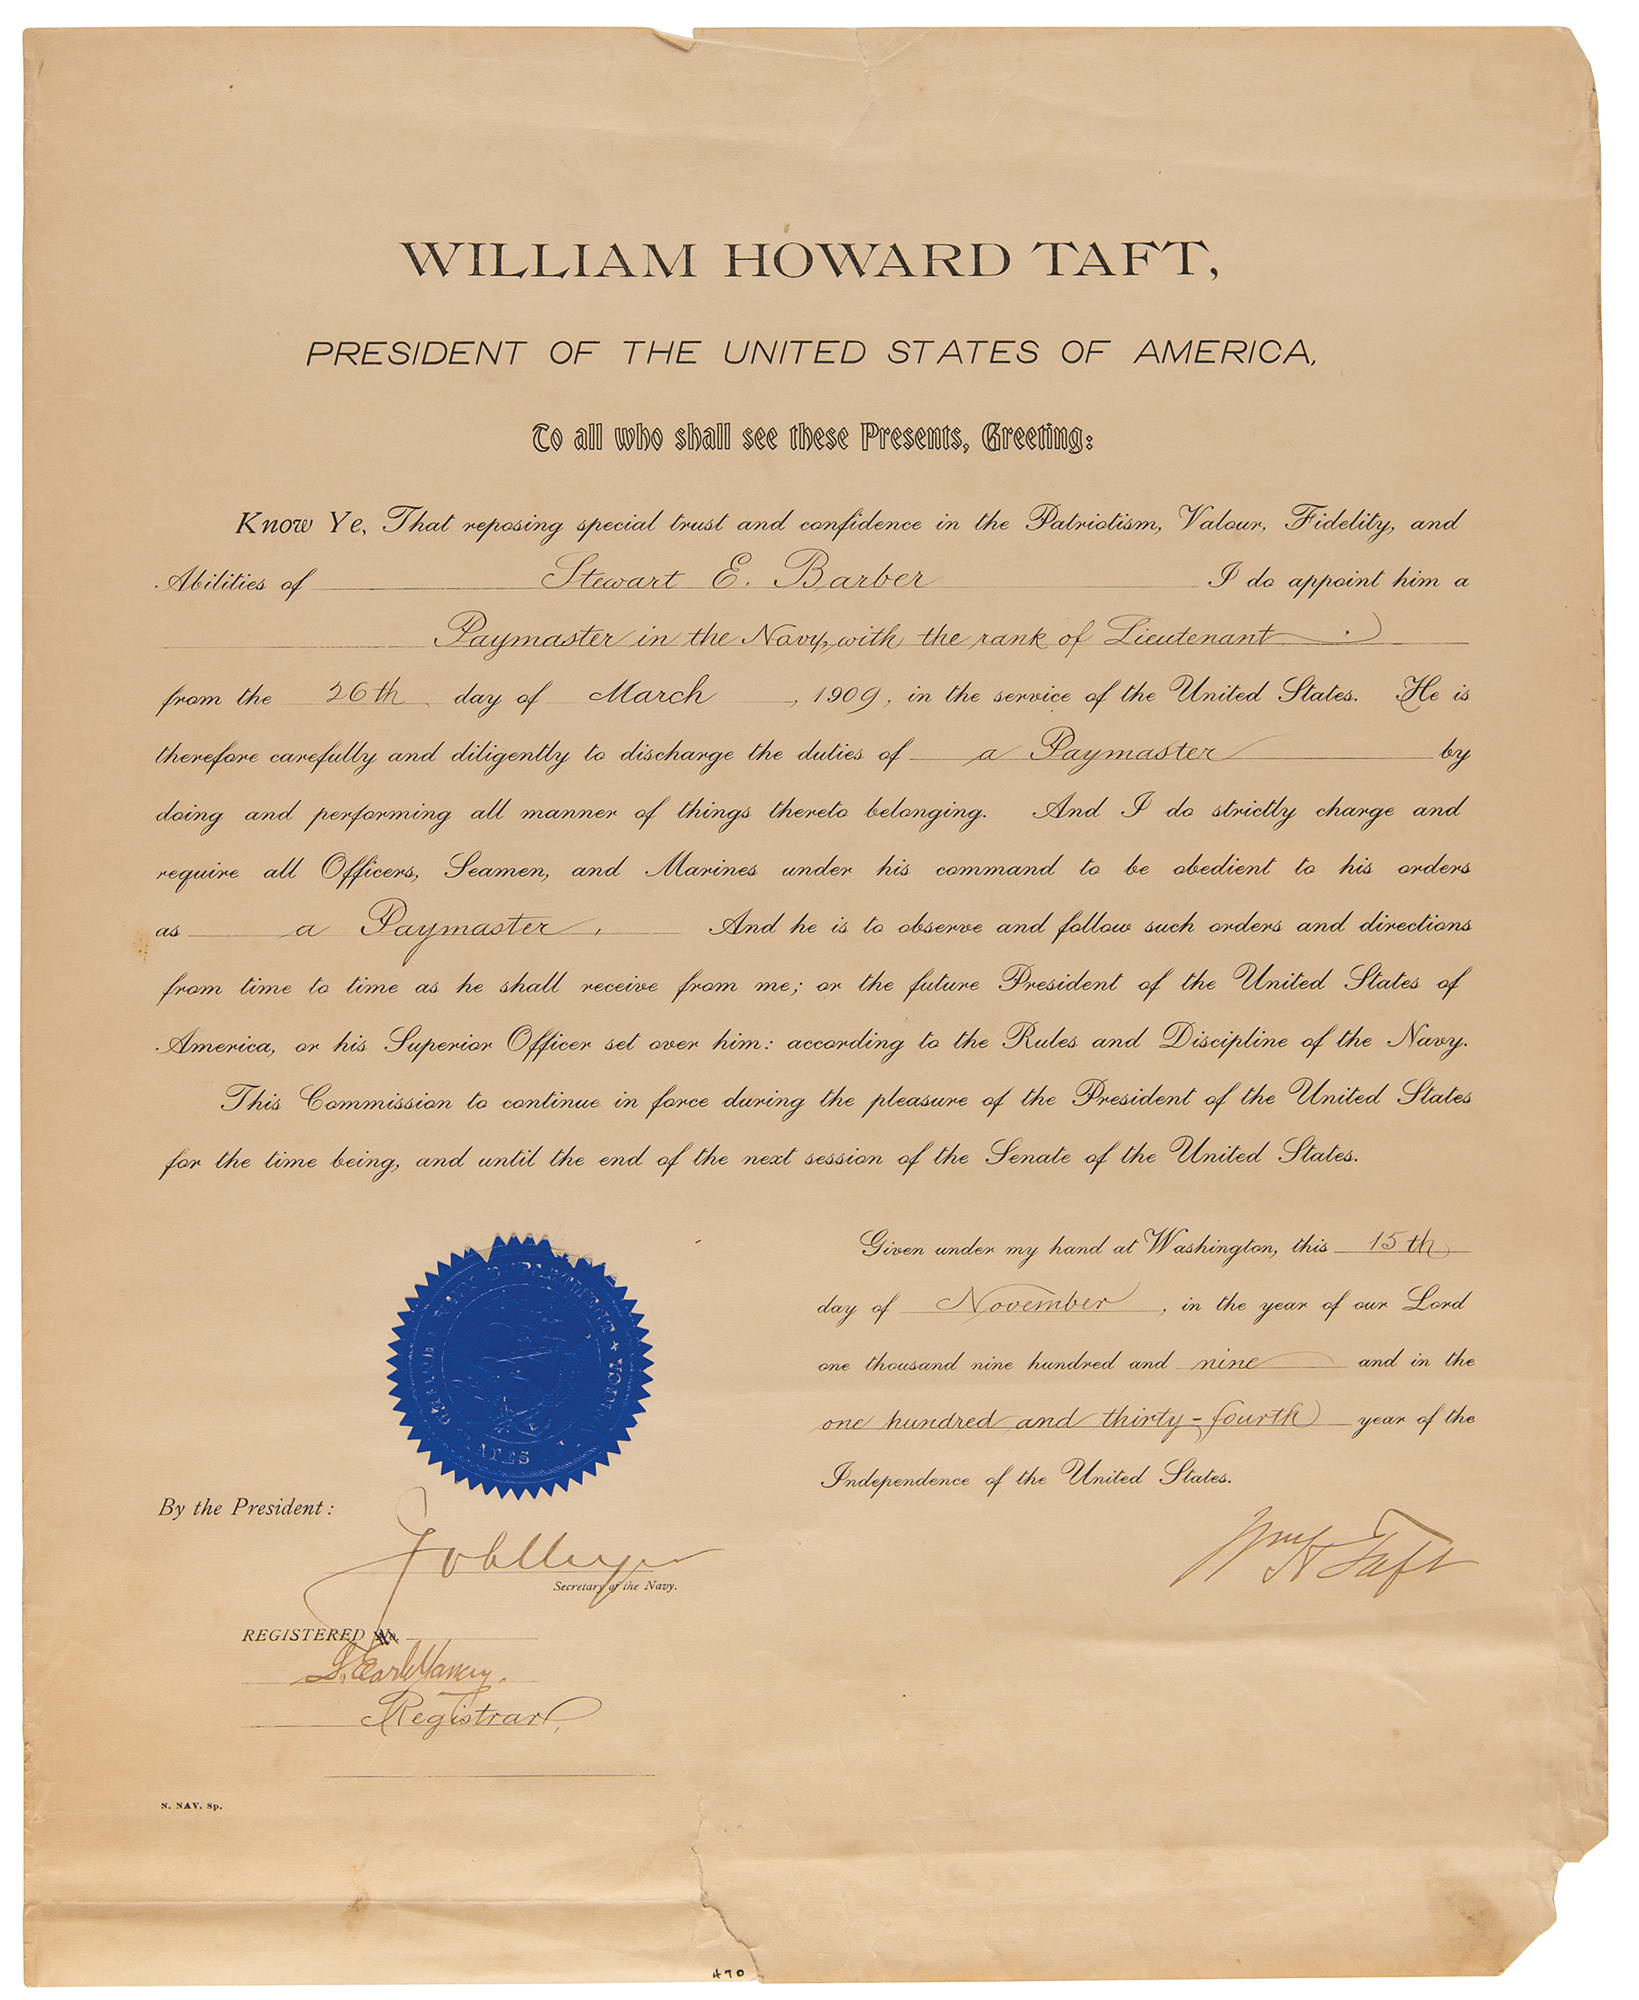 WILLIAM HOWARD TAFT,
PRESIDENT OF THE UNITED STATES OF AMERICA,
To all who shall see these Presents, Greeting:
Know Ye, That reposing special trust and confidence in the Patriotism, Valour, Fidelity, and
Abilities of Stewart E. Barber I do appoint him a
Paymaster in the Navy, with the rank of Lieutenant.
from the 26th day of March, 1909, in the service of the United States. He is
therefore carefully and diligently to discharge the duties of a Paymaster by
doing and performing all manner of things thereto belonging. And I do strictly charge and
require all Officers, Seamen, and Marines under his command to be obedient to his orders
as a Paymaster. And he is to observe and follow such orders and directions
from time to time as he shall receive from me; or the future President of the United States of
America, or his Superior Officer set over him: according to the Rules and Discipline of the Navy.
This Commission to continue in force during the pleasure of the President of the United States
for the time being, and until the end of the next session of the Senate of the United States.
Given under my hand at Washington, this 15th
day of November, in the year of our Lord
one thousand nine hundred and nine and in the
one hundred and thirty-fourth year of the
Independence of the United States.
Wm H Taft
NAVY DEPARTMENT
By the President:
Secretary of the Navy.
REGISTERED No.
Registrar.
N. NAV. Sp.
470